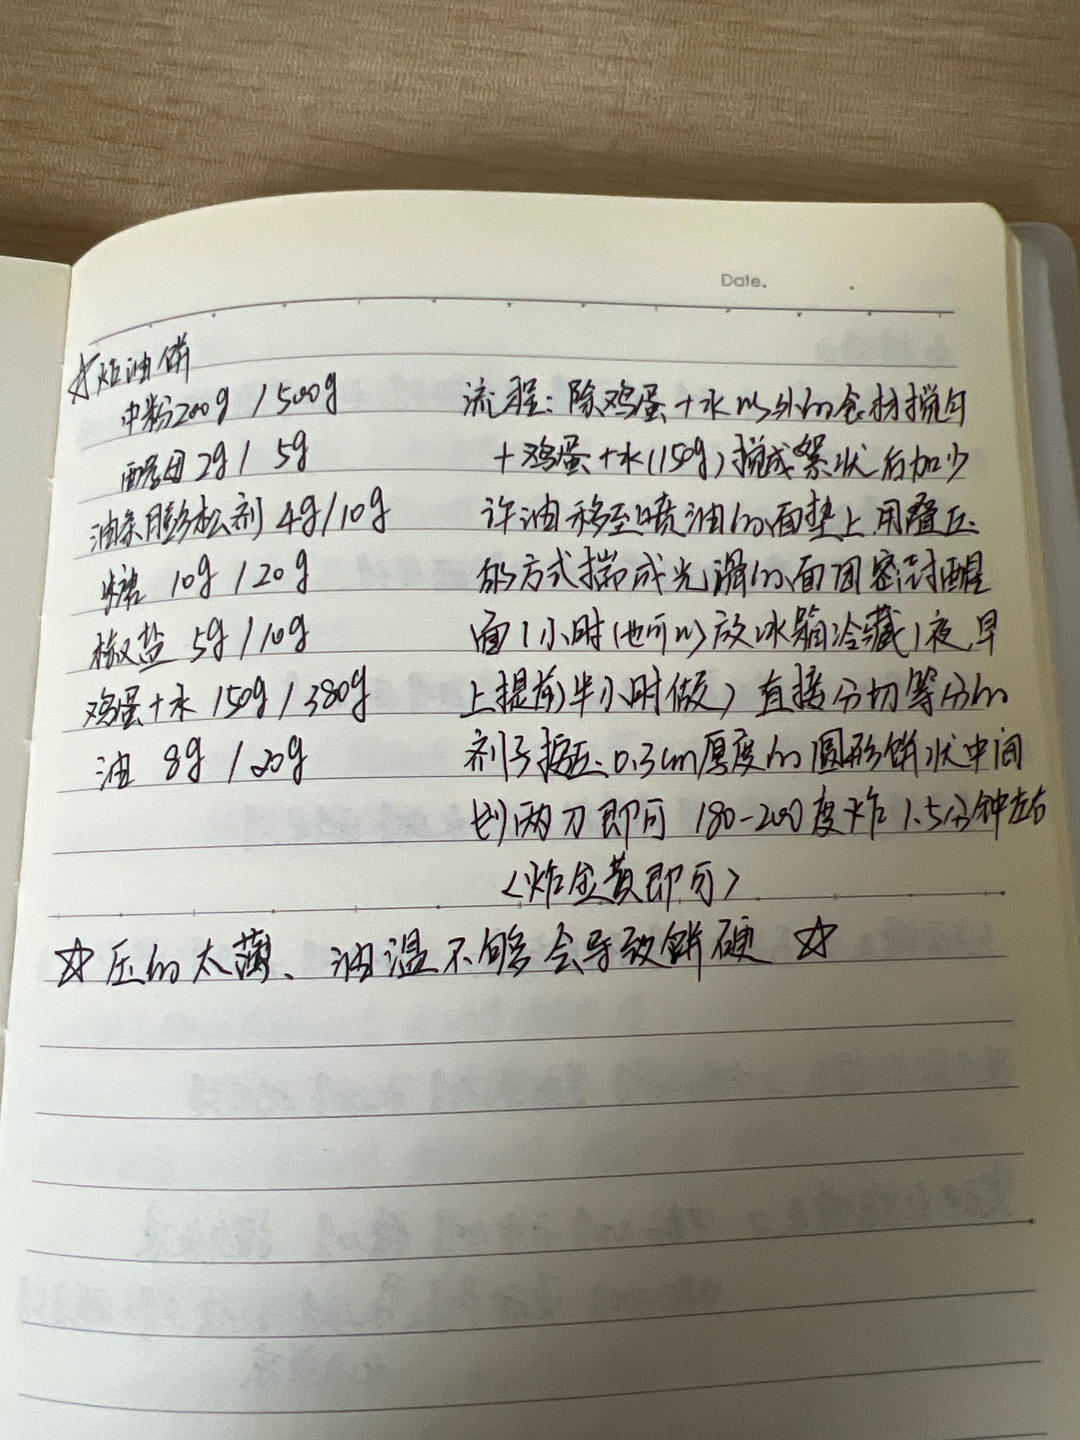 Date.
☆炸油饼
中粉200g / 500g
酵母 2g / 5g
油条膨松剂 4g/10g
糖 10g / 20g
椒盐 5g / 10g
鸡蛋+水 150g / 380g
油 8g / 20g
流程：除鸡蛋+水以外的食材搅匀
+鸡蛋+水(150g)搅成絮状后加少
许油移至喷油的面垫上用叠压
的方式揣成光滑的面团密封醒
面1小时(也可以)放冰箱冷藏1夜,早
上提前半小时做）直接分切等分的
剂子按压0.3cm厚度的圆形饼状中间
划两刀即可 180-200度炸1.5分钟左右
<炸金黄即可>
☆压的太薄、油温不够会导致饼硬 ☆